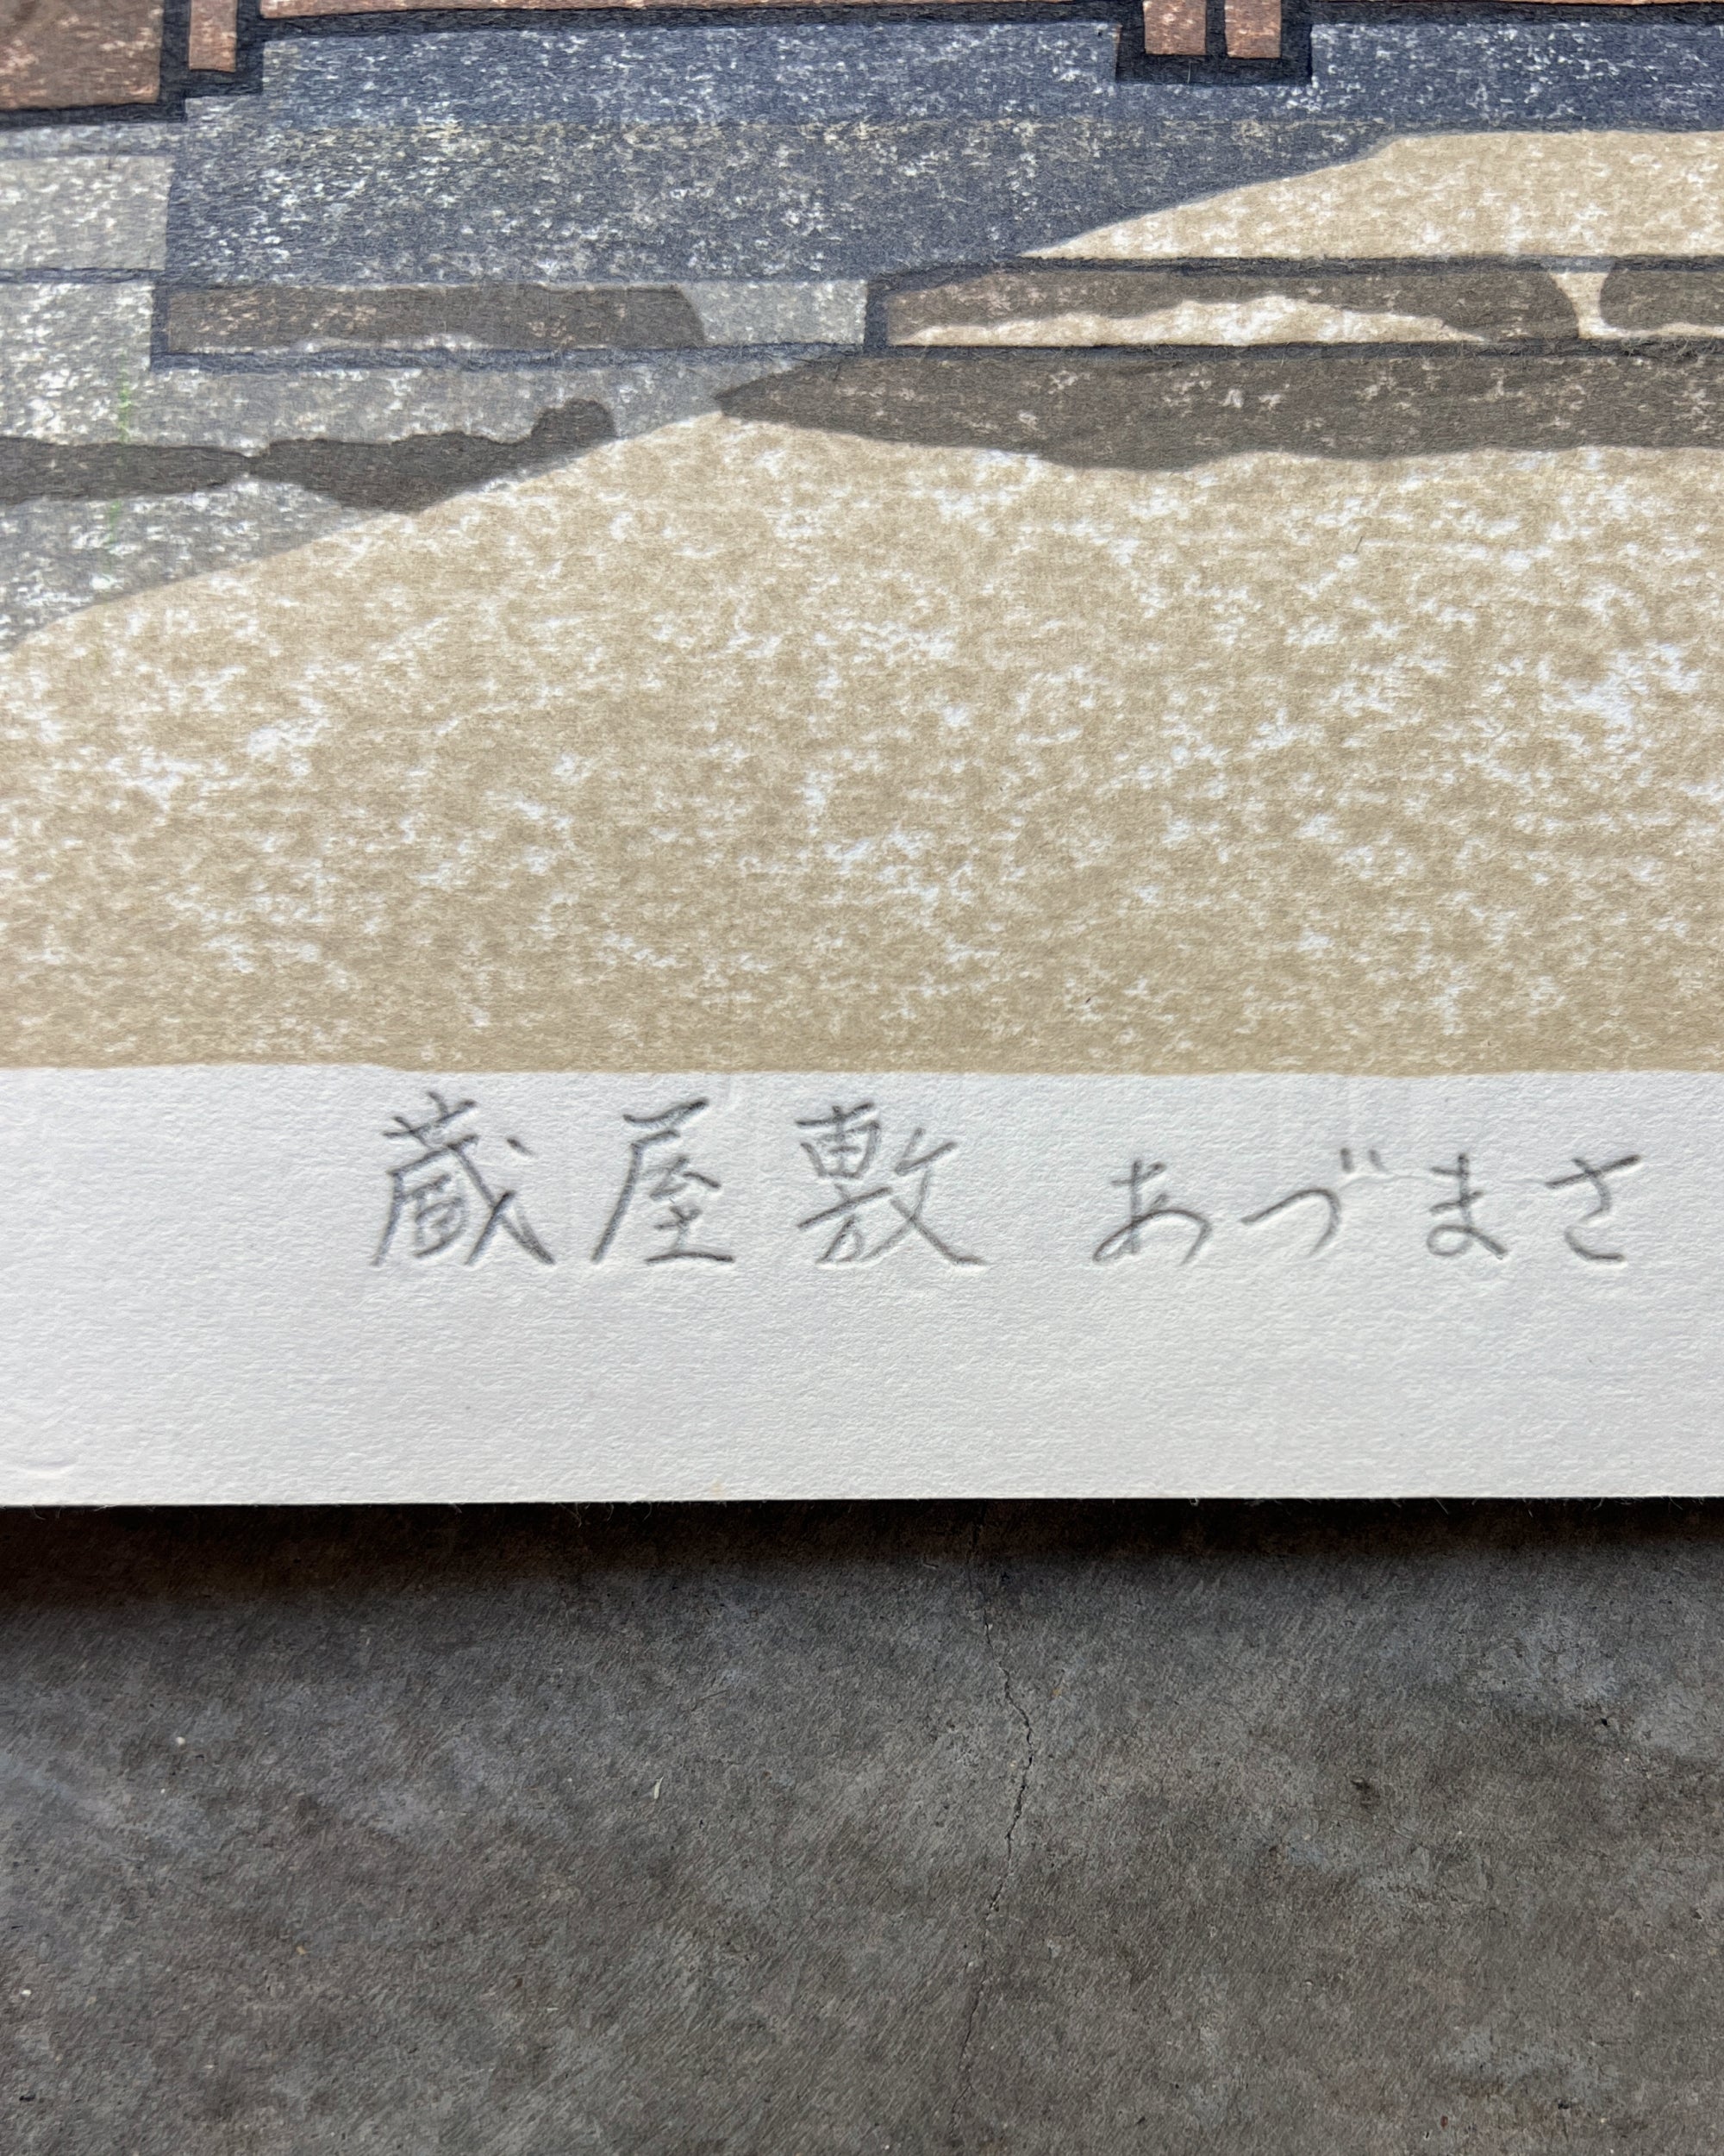 蔵屋敷 あづまさ